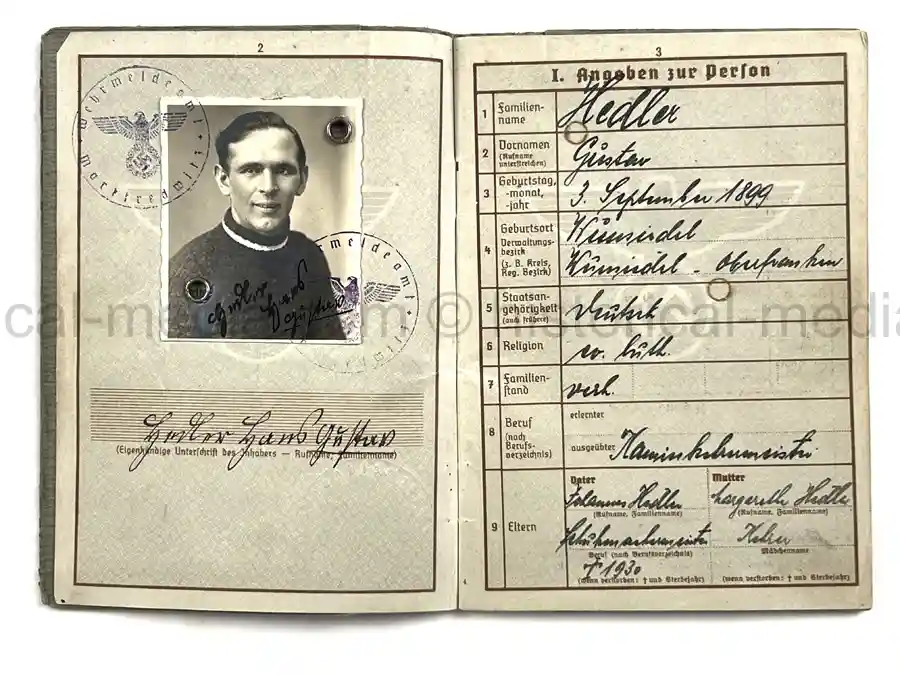 2
Wehrmeldeamt
Marktredwitz
Wehrmeldeamt
Hedler Hans
Gustav
Hedler Hans Gustav
(Eigenhändige Unterschrift des Inhabers — Rufname, Familienname)
3
I. Angaben zur Person
1 Familien-name Hedler
2 Vornamen (Rufname unterstreichen) Gustav
3 Geburtstag, -monat, -jahr 3. September 1899
4 Geburtsort Wunsiedel
Verwaltungsbezirk (z. B. Kreis, Reg. Bezirk) Wunsiedel - Oberfranken
5 Staatsan-gehörigkeit (auch frühere) Deutsch
6 Religion ev. luth.
7 Familien-stand verh.
8 Beruf (nach Berufs-verzeichnis) erlernter
ausgeübter Kaminkehrermeister
9 Eltern
Vater Mutter
Johannes Hedler Margarethe Hedler
(Rufname, Familienname) (Rufname, Familienname)
Schuhmachermeister
Beruf (nach Berufsverzeichnis) Mädchenname
† 1930
(wenn verstorben: † und Sterbejahr) (wenn verstorben: † und Sterbejahr)